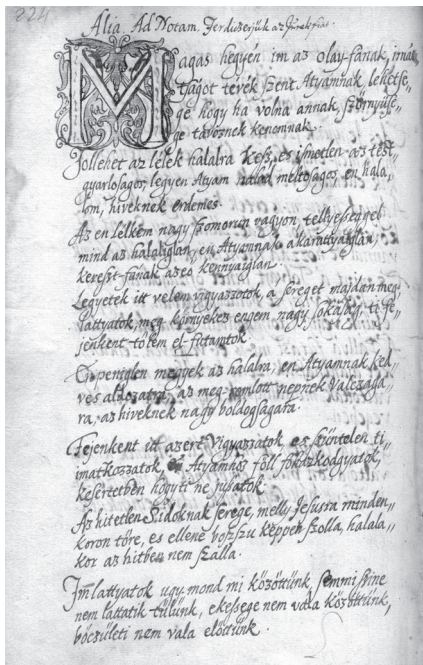 224
Alia. Ad Notam. Ferdicserjük az Ŭrnek fiat.
Magas hegyén im az olay-fának, imád,,
tságot tévék Szent Atyamnak, lehetse,,
ge hogy ha volna annak, szörnyüse,,
ge távoznek kenomnak.
Jollehet az lélek halalra kész, es ismetlen az test
gyarlosagos, legyen Atyam nálad meltosagos, en hala,,
lom, hiveknek erdemes.
Az en lelkem nagy szomorun vagyon, tellyesseggel
mind az halaliglan, en Atyamnak akarattyaiglan,
kereszt-fának azeo kennyaiglan.
Legyetek itt velem vigyazzotok, a sereget majdan meg,,
lattyatok, meg környekez engem nagy sokasag, ti fe,,
jenkent tölem el-futamtok.
En peniglen megyek az halalra, en Atyamnak ked,,
ves aldozatra, az meg-romlott nepnek valczaga,,
ra, az hiveknek nagy boldogsagara.
Fejenkent itt azert vigyazzatok, es szüntelen ti
imatkozzatok, én Atyamhoz föll fohazkodgyatok,
kesertetben hogy ti ne jusatok.
Az hitetlen Sidoknak serege, melly Jesusra minden,,
koron töre, es ellene bozzu képpen szolla, halala,,
kor az hitben nem szalla.
Im lattyatok ugy mond mi közöttünk, semmi szine
nem lattatik tülünk, ekessege nem vala közöttünk,
böczületi nem vala elöttünk.